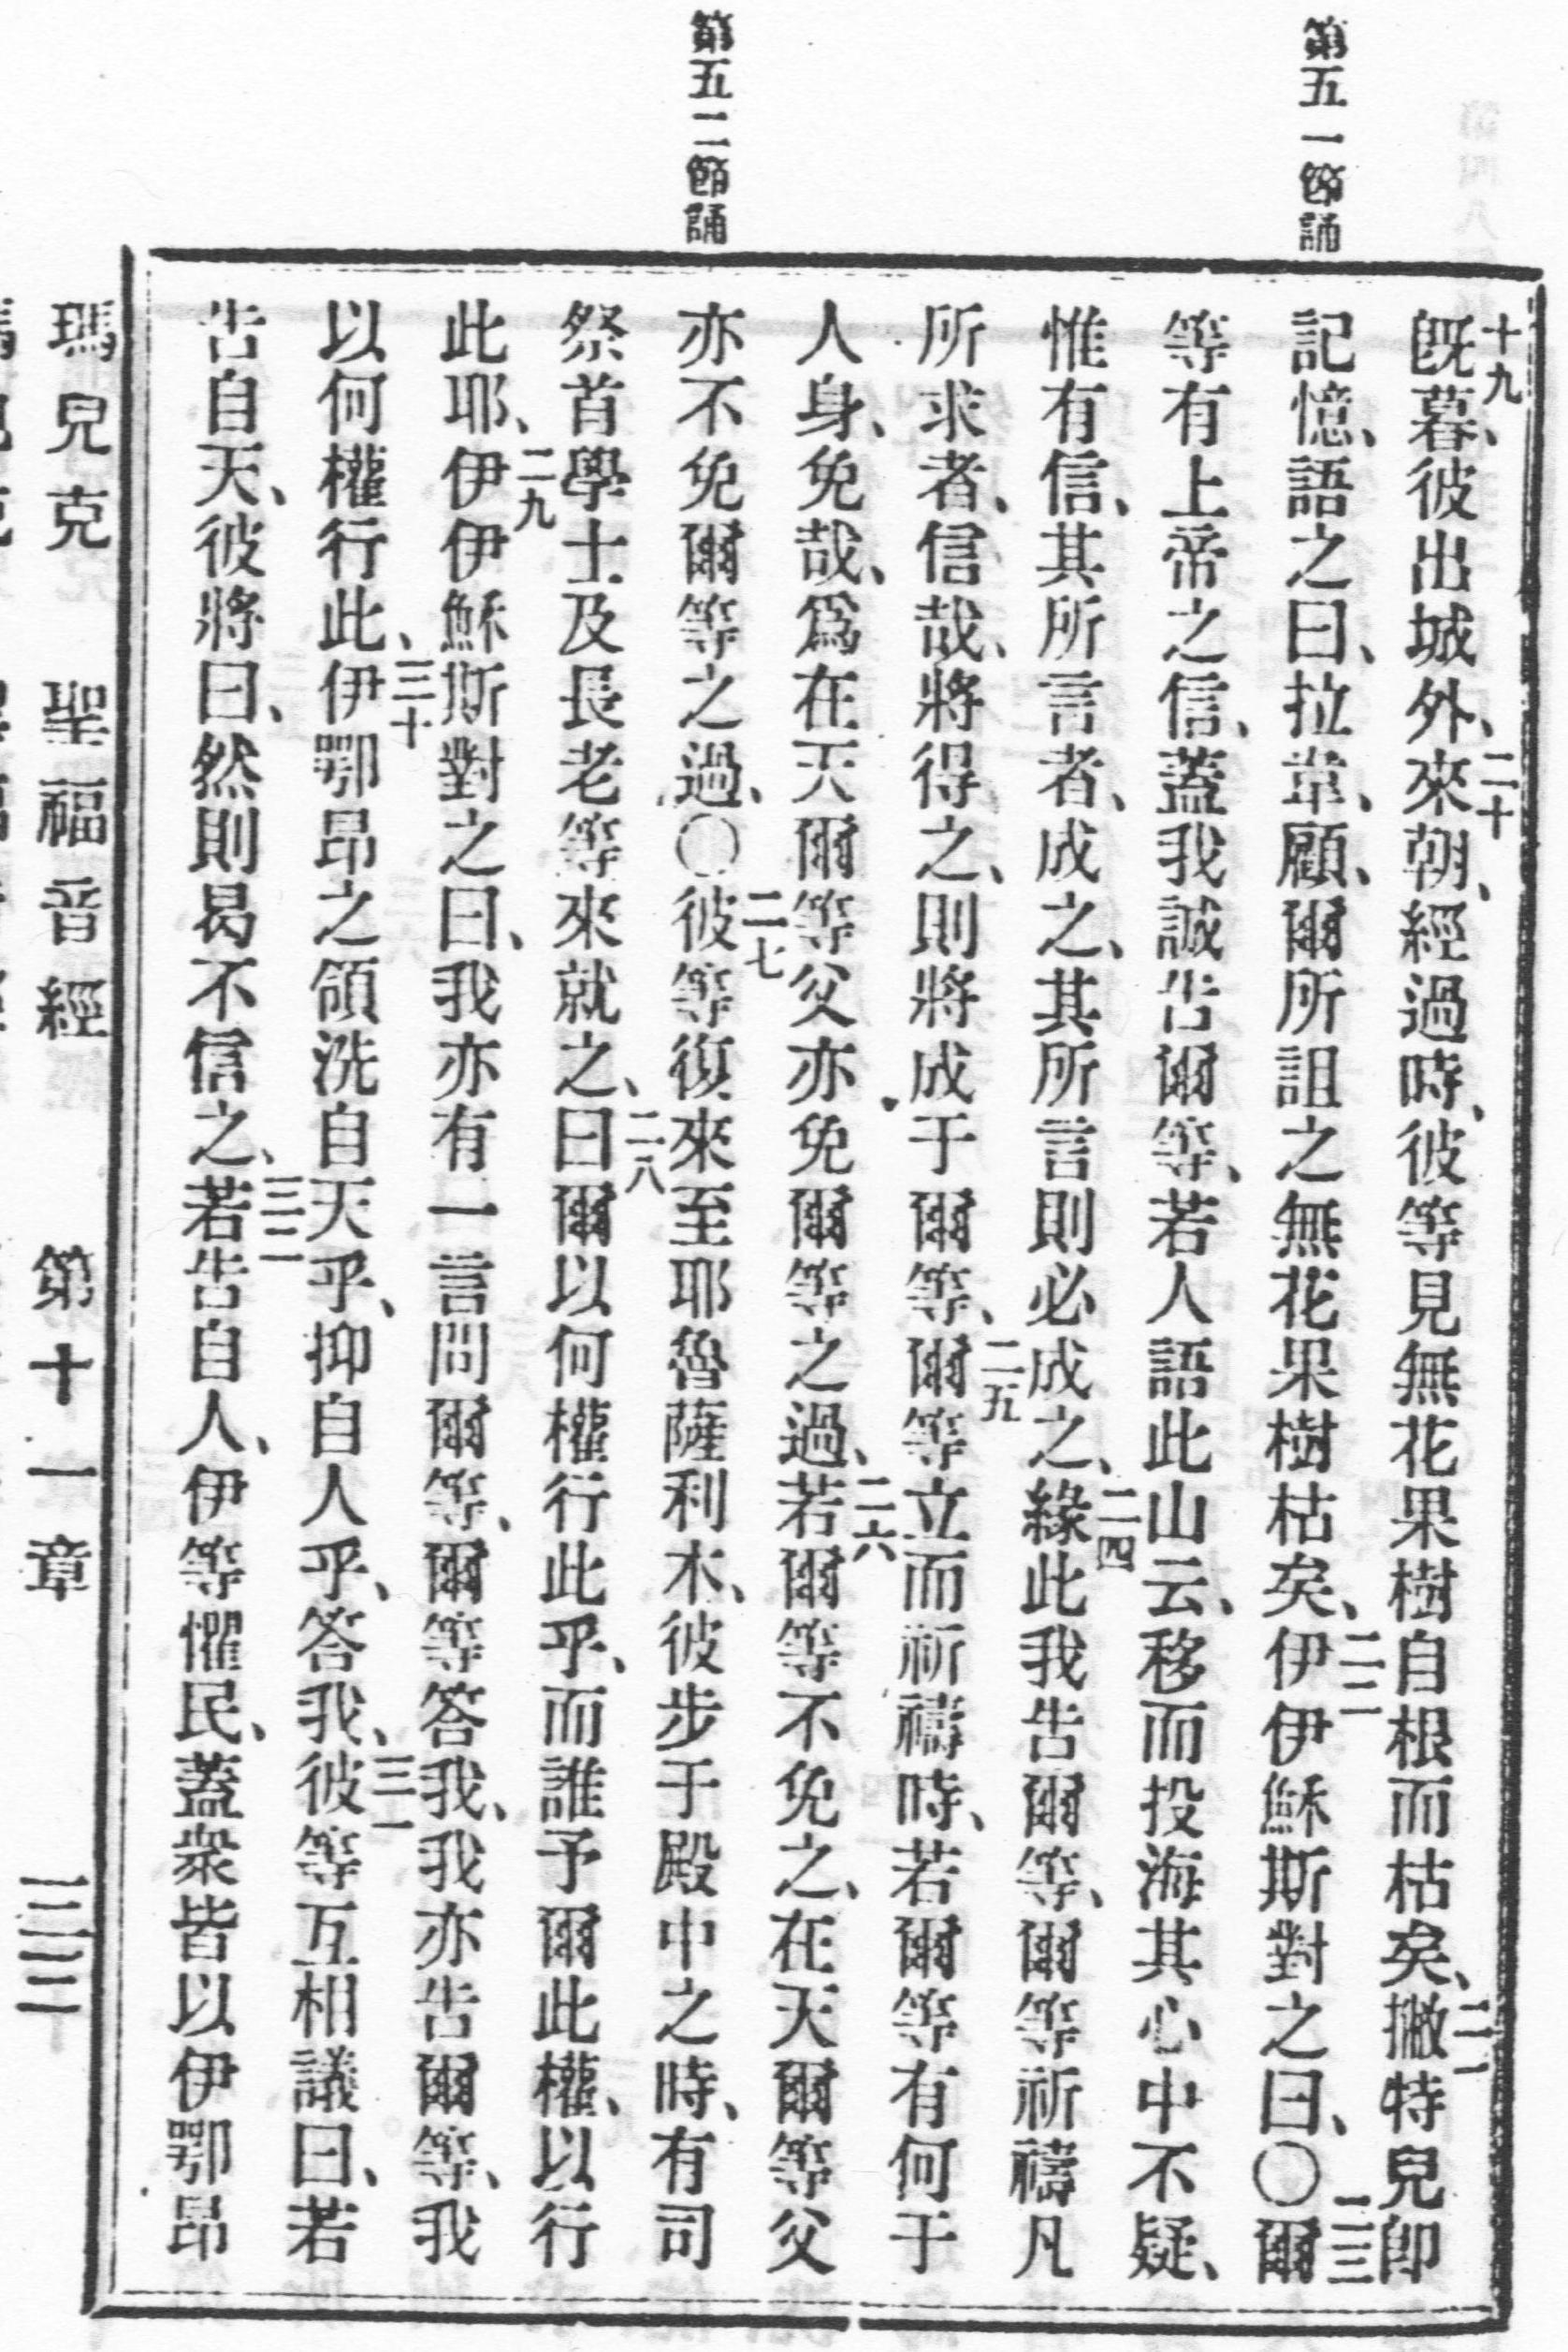 第五一節誦
第五二節誦
十九既暮、彼出城外、二十來朝、經過時、彼等見無花果樹自根而枯矣、二一撇特兒卽
記憶、語之曰、拉韋、顧、爾所詛之無花果樹枯矣、二二伊伊穌斯對之曰、〇二三爾
等有上帝之信、蓋我誠告爾等、若人語此山云、移而投海其心中不疑、
惟有信、其所言者、成之、其所言則必成之、二四緣此我告爾等、爾等祈禱凡
所求者、信哉、將得之、則將成于爾等、二五爾等立而祈禱時、若爾等有何于
人身、免哉、爲在天爾等父亦免爾等之過、二六若爾等不免之、在天爾等父
亦不免爾等之過、〇二七彼等復來至耶魯薩利木、彼步于殿中之時、有司
祭首學士及長老等來就之、二八曰爾以何權行此乎、而誰予爾此權、以行
此耶、二九伊伊穌斯對之曰、我亦有一言問爾等、爾等答我、我亦告爾等、我
以何權行此、三十伊鄂昂之領洗自天乎、抑自人乎、答我、三一彼等互相議曰、若
告自天、彼將曰、然則曷不信之、三二若告自人、伊等懼民、蓋衆皆以伊鄂昂
瑪兒克 聖福音經 第十一章 三三